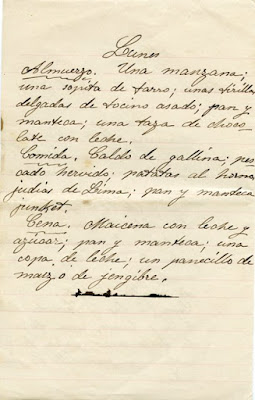 Lunes
Almuerzo. Una manzana;
una sopita de tarro; unas tirillas
delgadas de tocino asado; pan y
manteca; una taza de choco
late con leche.
Comida. Caldo de gallina; pes
cado hervido; patatas al horno;
judias de Lima; pan y manteca
junket.
Cena. Maicena con leche y
azúcar; pan y manteca; una
copa de leche; un panecillo de
maiz o de jengibre.